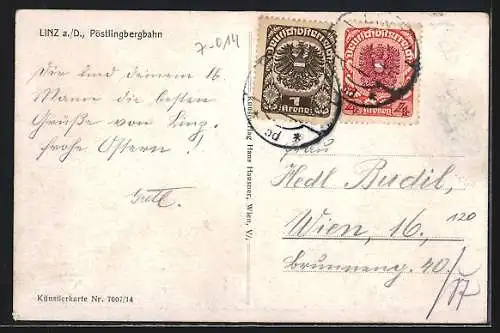 LINZ a./D., Pöstlingbergbahn
7-014
Deutschösterreich
1
Krone
Deutschösterreich
4
Kronen
Dir und deinem lb.
Manne die besten
Grüße von Linz,
frohe Ostern!
Gretl.
Kunstverlag Hans Hausner, Wien, V/
Frau
Hedl Budil,
Wien, 16,
120
Brunneng. 40/
Künstlerkarte Nr. 7007/14